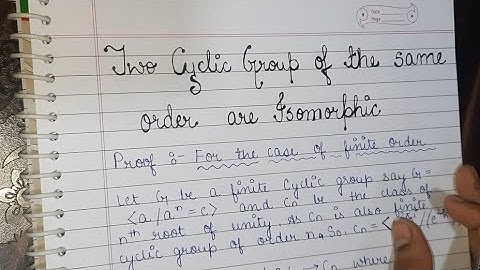 Date
Page
Two Cyclic Group of the same
order are Isomorphic
Proof :- For the case of finite order
Let G be a finite Cyclic group say G =
<a / aⁿ = e> and Cn be the class of
nth root of unity. As Cn is also finite
cyclic group of order n. So, Cn = <
→ Cn where